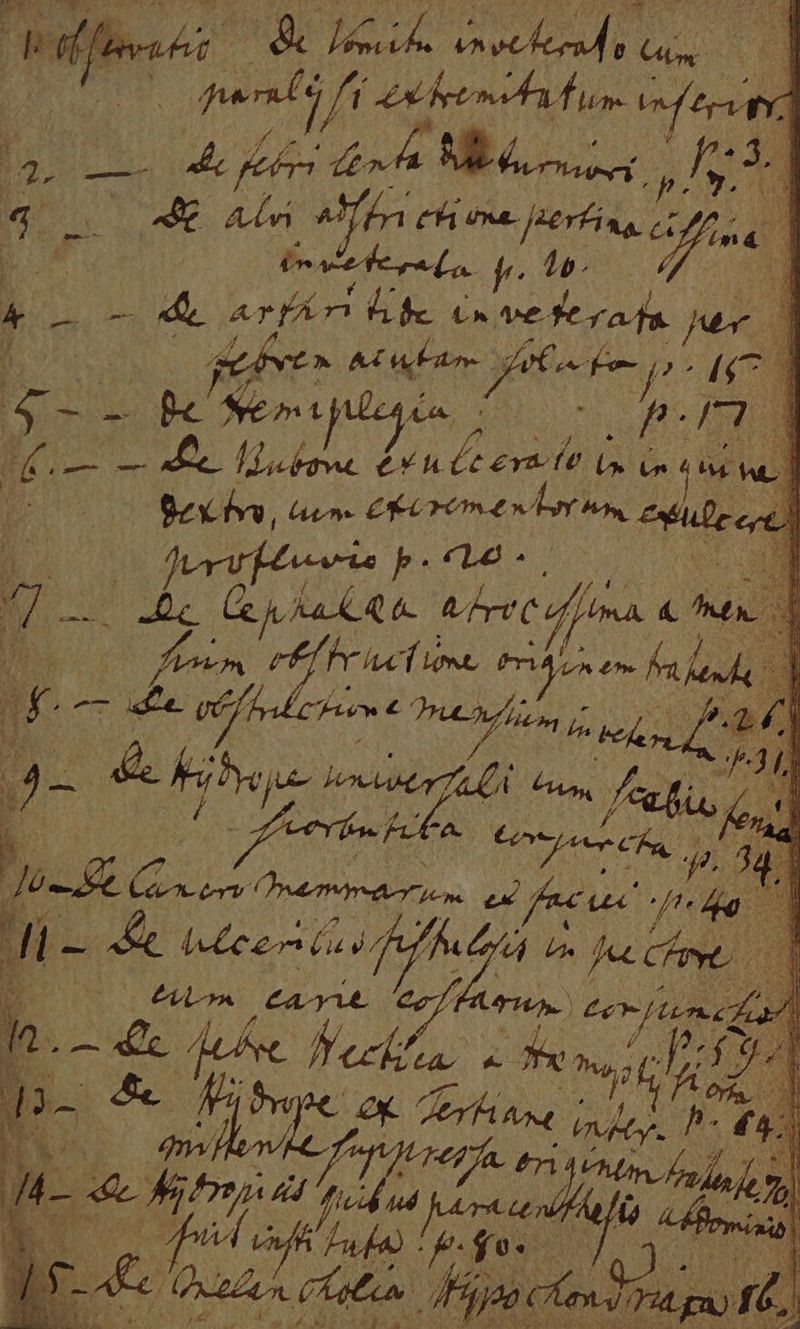 1. Observatio De Vomitu inveterato cum
paralysi extremitatum inferior.
2. — de febri lenta p. 7.
3 — De alvi adstrictione pertinacissima
inveterata p. 10.
4 — — de arthritide inveterata per
febrem acutam soluta p. 15
5 — — De Hemiplegia p. 17
6. — — De Bubone exulcerato in inguine
dextro, cum excrementorum exulcera
profluvio p. 20.
7 — De Cephalaea atrocissima a men
sium obstructione originem trahente
p. 26.
8. — de obstructione mensium inveterata p. 31.
9 — de hydrope universali cum scabie
scorbutica conjuncta p. 34.
10 — De Cancro mammarum et faciei p. 40
11 — De ulceribus fistulosis in pectore
cum carie costarum conjunctis
p. 59
12. — De febre Hectica
13 — De Hydrope ex Tertiana inter p. 64
mittente suppressa originem trahente 70
14 — De Hydropicis quibus paracenthesis abdominis
fuit instituta p. 80.
15 — De Melancholia Hypochondriaca 86.